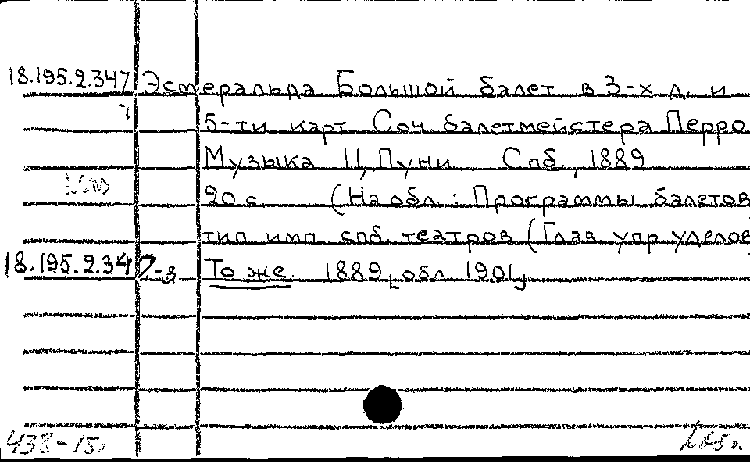 18.195.2.347 Эсмеральда Большой балет в 3-х д. и
5-ти карт Соч балетмейстера Перро
Музыка Ц. Пуни Спб, 1889
20 с. (На обл.: Программы балетов
тип имп спб. театров (Глав упр уделов
18.195.2.347-а То же. 1889, [обл 1901]
438-15